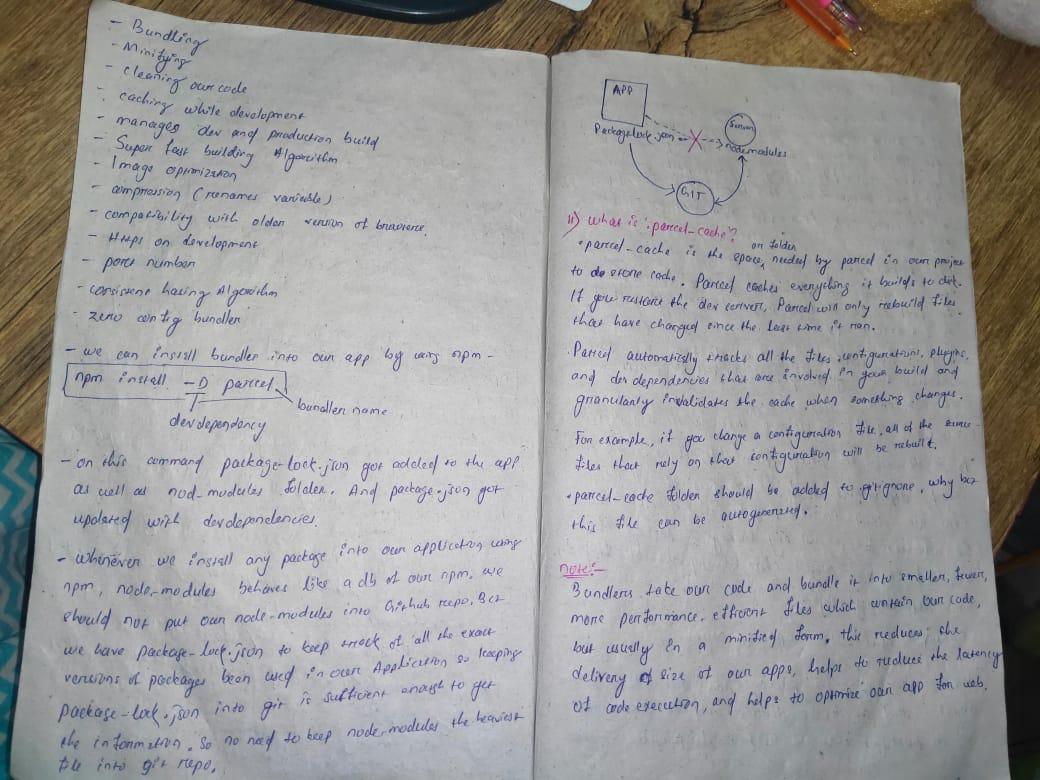 - Bundling
- Minifying
- cleaning our code
- caching while development
- manages dev and production build
- Super fast building Algorithm
- Image optimization
- compression (renames variable)
- compatibility with older version of browsers.
- Https on development
- port number
- consistent hasing Algorithm
- zero config bundler
- we can install bundler into our app by using npm -
npm install -D parcel
bundler name
devdependency
- on this command package-lock.json got added to the app
as well as nod-modules folder. And package.json got
updated with devdependencies.
- Whenever we install any package into our application using
npm, node-modules behaves like a db of our npm. we
should not put our node-modules into Github repo. Bcz
we have package-lock.json to keep track of all the exact
versions of packages been used in our Application so keeping
package-lock.json into git is sufficient enough to get
the information. So no need to keep node-modules the heaviest
file into git repo.
APP
Package-lock.json
Server
node-modules
GIT
11) what is '.parcel-cache'?
or folder
• parcel-cache is the space, needed by parcel in our project
to store cache. Parcel caches everything it builds to disk.
If you restart the dev server, Parcel will only rebuild files
that have changed since the last time it ran.
Parcel automatically tracks all the files, configurations, plugins,
and dev dependencies that are involved in your build and
granularly invalidates the cache when something changes.
For example, if you change a configuration file, all of the source
files that rely on that configuration will be rebuilt.
• parcel-cache folder should be added to gitignore, why bcz
this file can be autogenerated.
note:-
Bundlers take our code and bundle it into smaller, fewer,
more performance. efficient files which contain our code,
but usually in a minified form, this reduces the
delivery of size of our apps, helps to reduce the latency
of code execution, and helps to optimize our app for web.